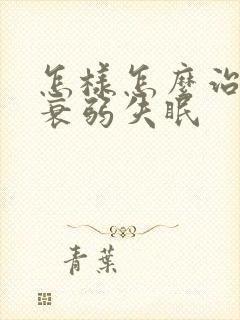 怎樣怎麼治
衰弱失眠
青葉